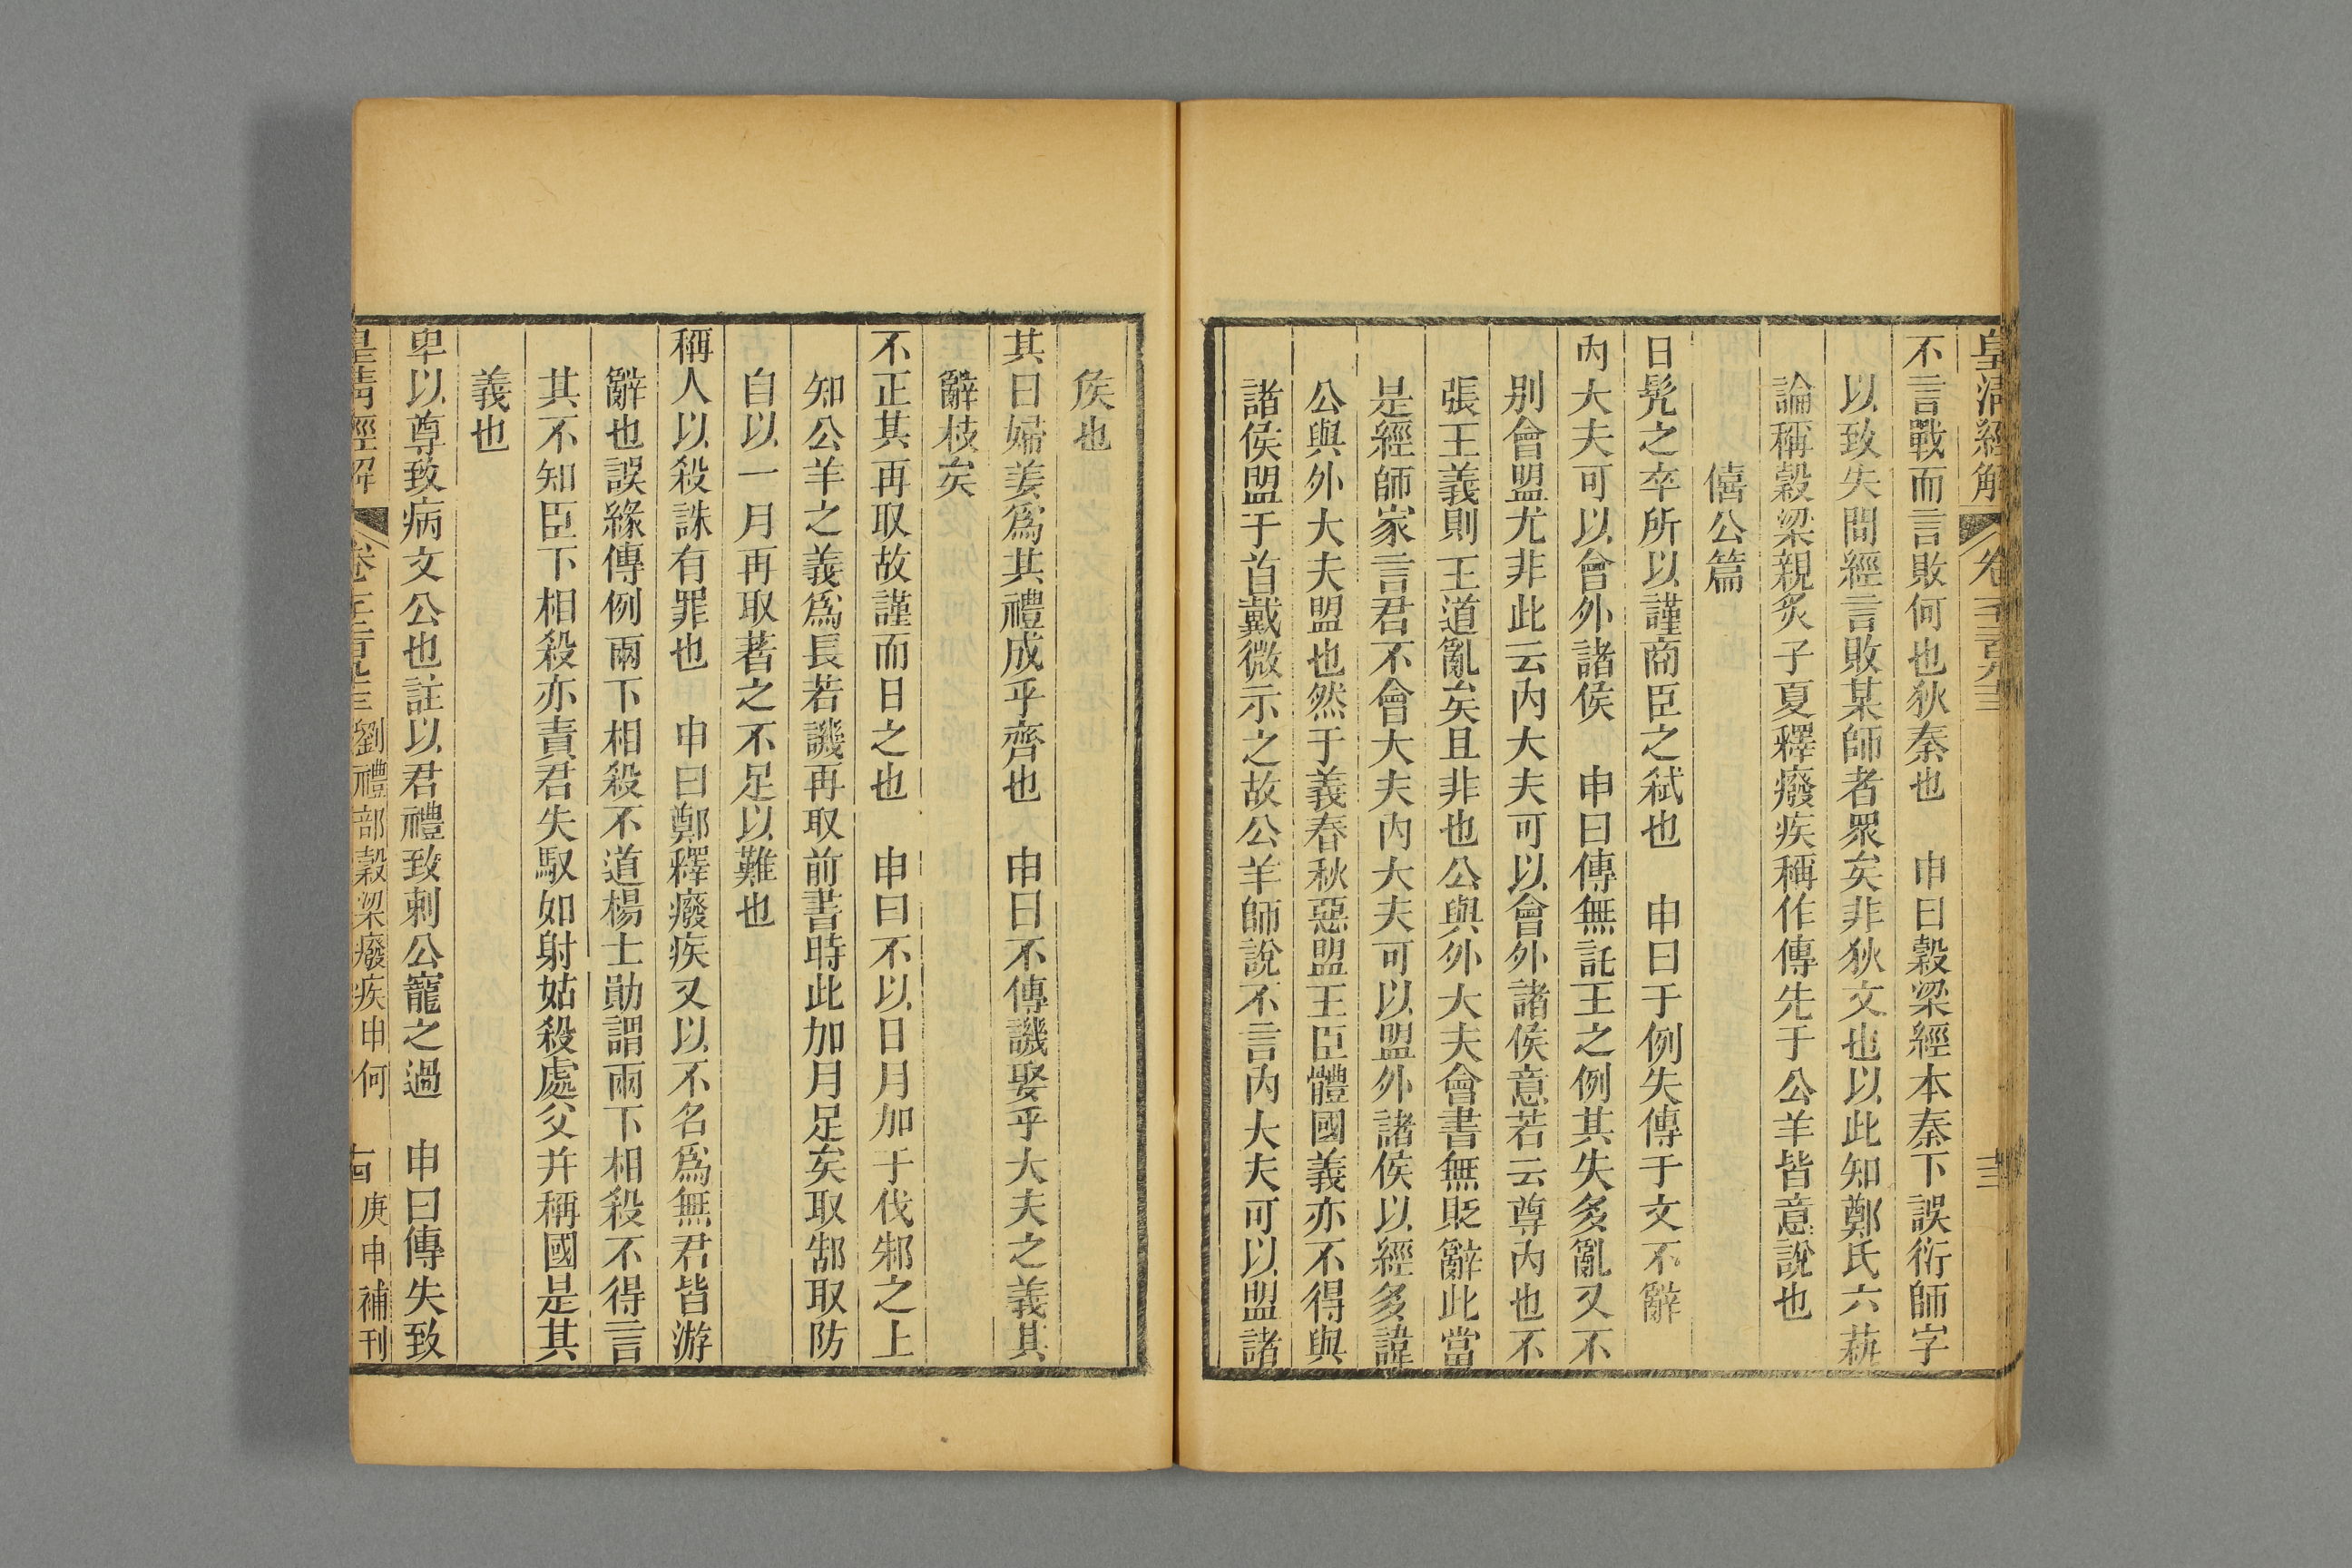 皇清經解
卷
不言戰而言敗何也狄秦也　申曰穀梁經本秦下誤衍師字
以致失問經言敗某師者眾矣非狄文也以此知鄭氏六蓺
論稱穀梁親炙子夏釋癈疾稱作傳先于公羊皆意說也
僖公篇
日髠之卒所以謹商臣之弒也　申曰于例失傳于文不辭
內大夫可以會外諸侯　申曰傳無託王之例其失多亂又不
別會盟尤非此云內大夫可以會外諸侯意若云尊內也不
張王義則王道亂矣且非也公與外大夫會書無貶辭此當
是經師家言君不會大夫內大夫可以盟外諸侯以經多諱
公與外大夫盟也然于義春秋惡盟王臣體國義亦不得與
諸侯盟于首戴微示之故公羊師說不言內大夫可以盟諸
侯也
其曰婦姜爲其禮成乎齊也　申曰不傳譏娶乎大夫之義其
辭枝矣
不正其再取故謹而日之也　申曰不以日月加于伐邾之上
知公羊之義爲長若譏再取前書時此加月足矣取郜取防
自以一月再取著之不足以難也
稱人以殺誅有罪也　申曰鄭釋癈疾又以不名爲無君皆游
辭也誤緣傳例兩下相殺不道楊士勛謂兩下相殺不得言
其不知臣下相殺亦責君失馭如射姑殺處父并稱國是其
義也
卑以尊致病文公也註以君禮致刺公寵之過　申曰傳失致
皇清經解
卷
劉禮部穀梁癈疾申何
庚申補刊